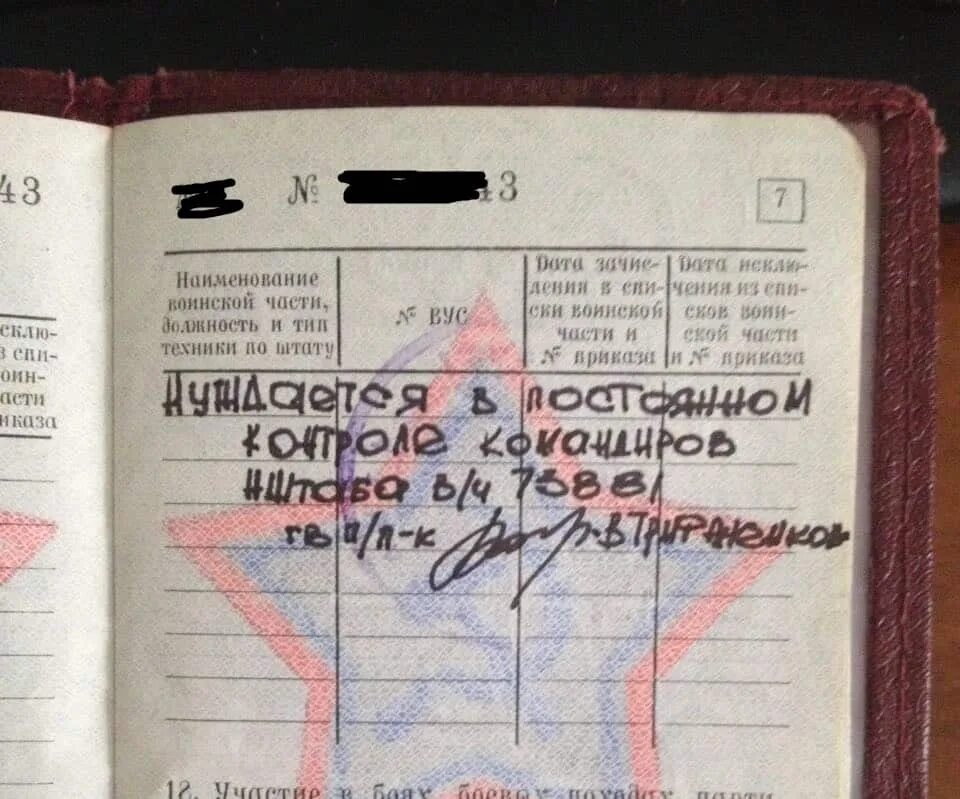 43
№ 43
7
Наименование воинской части, должность и тип техники по штату
№ ВУС
Дата зачисления в списки воинской части и № приказа
Дата исключения из списков воинской части и № приказа
склю-
в спи-
оин-
асти
риказа
Нуждается в постоянном
контроле командиров
и штаба в/ч 73881
гв п/п-к В Трифаненков
12. Участие в боях, боевых походах, парти